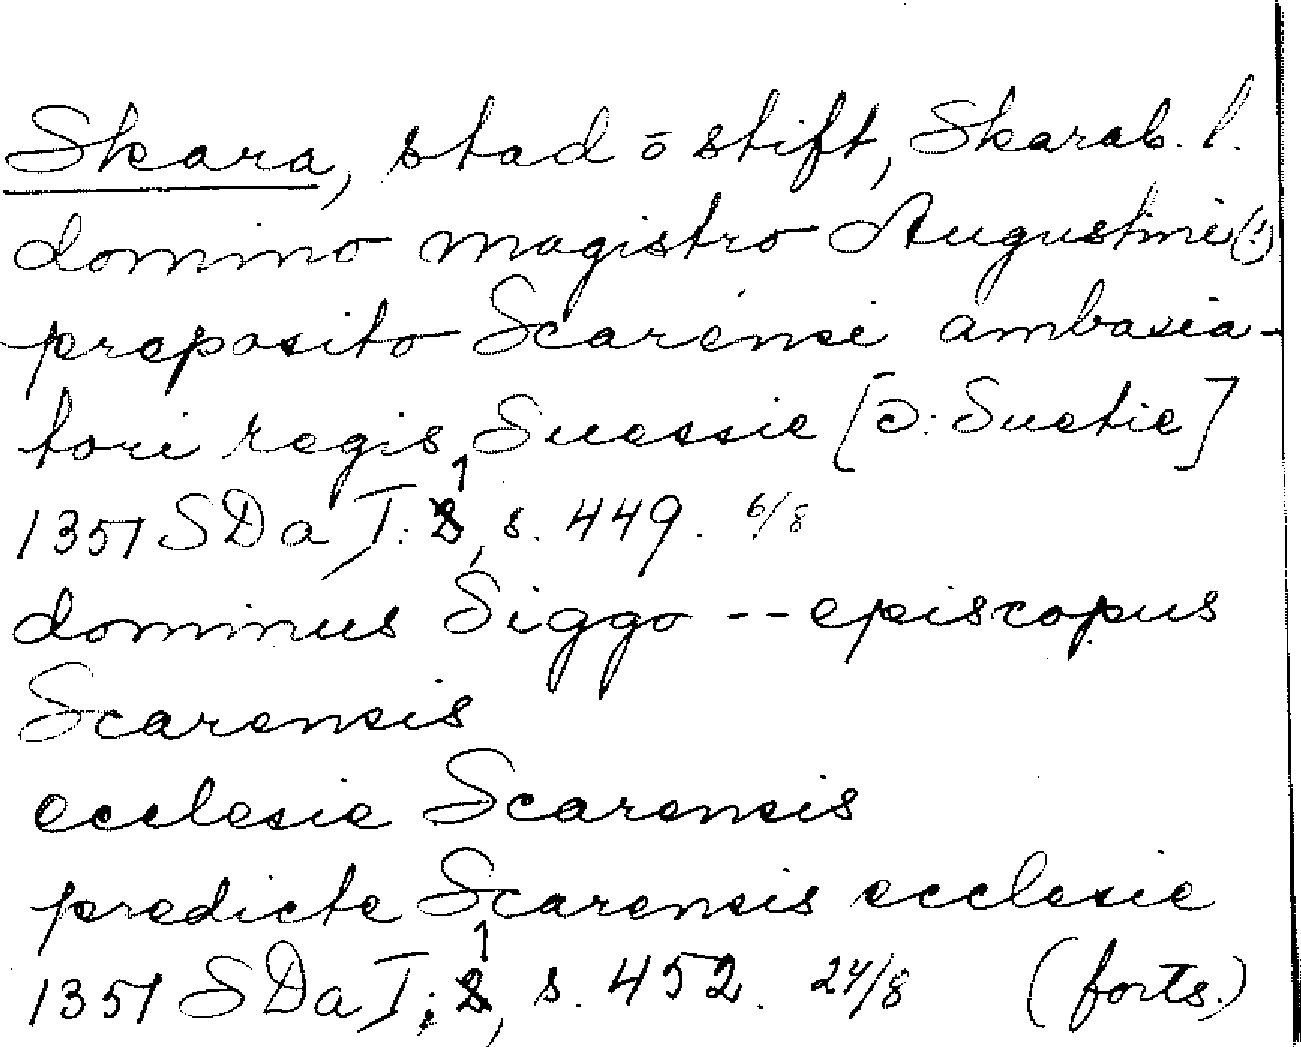 Skara, stad o stift, Skarab. l.
domino magistro Augustini (!)
preposito Scarensi ambasia-
tori regis Suessie [ɔ: Suetie]
1351 SDa I: 1, s. 449. 6/8
dominus Siggo -- episcopus
Scarensis
ecclesie Scarensis
predicte Scarensis ecclesie
1351 SDa I: 1, s. 452. 24/8 (forts.)